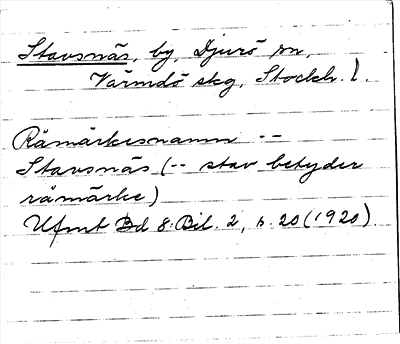 Stavsnäs, by, Djurö sn,
Värmdö skg, Stockh. l.
Råmärkesnamn --
Stavsnäs (-- stav betyder
råmärke)
Ufmt Bd 8: Bil. 2, s. 20 (1920).